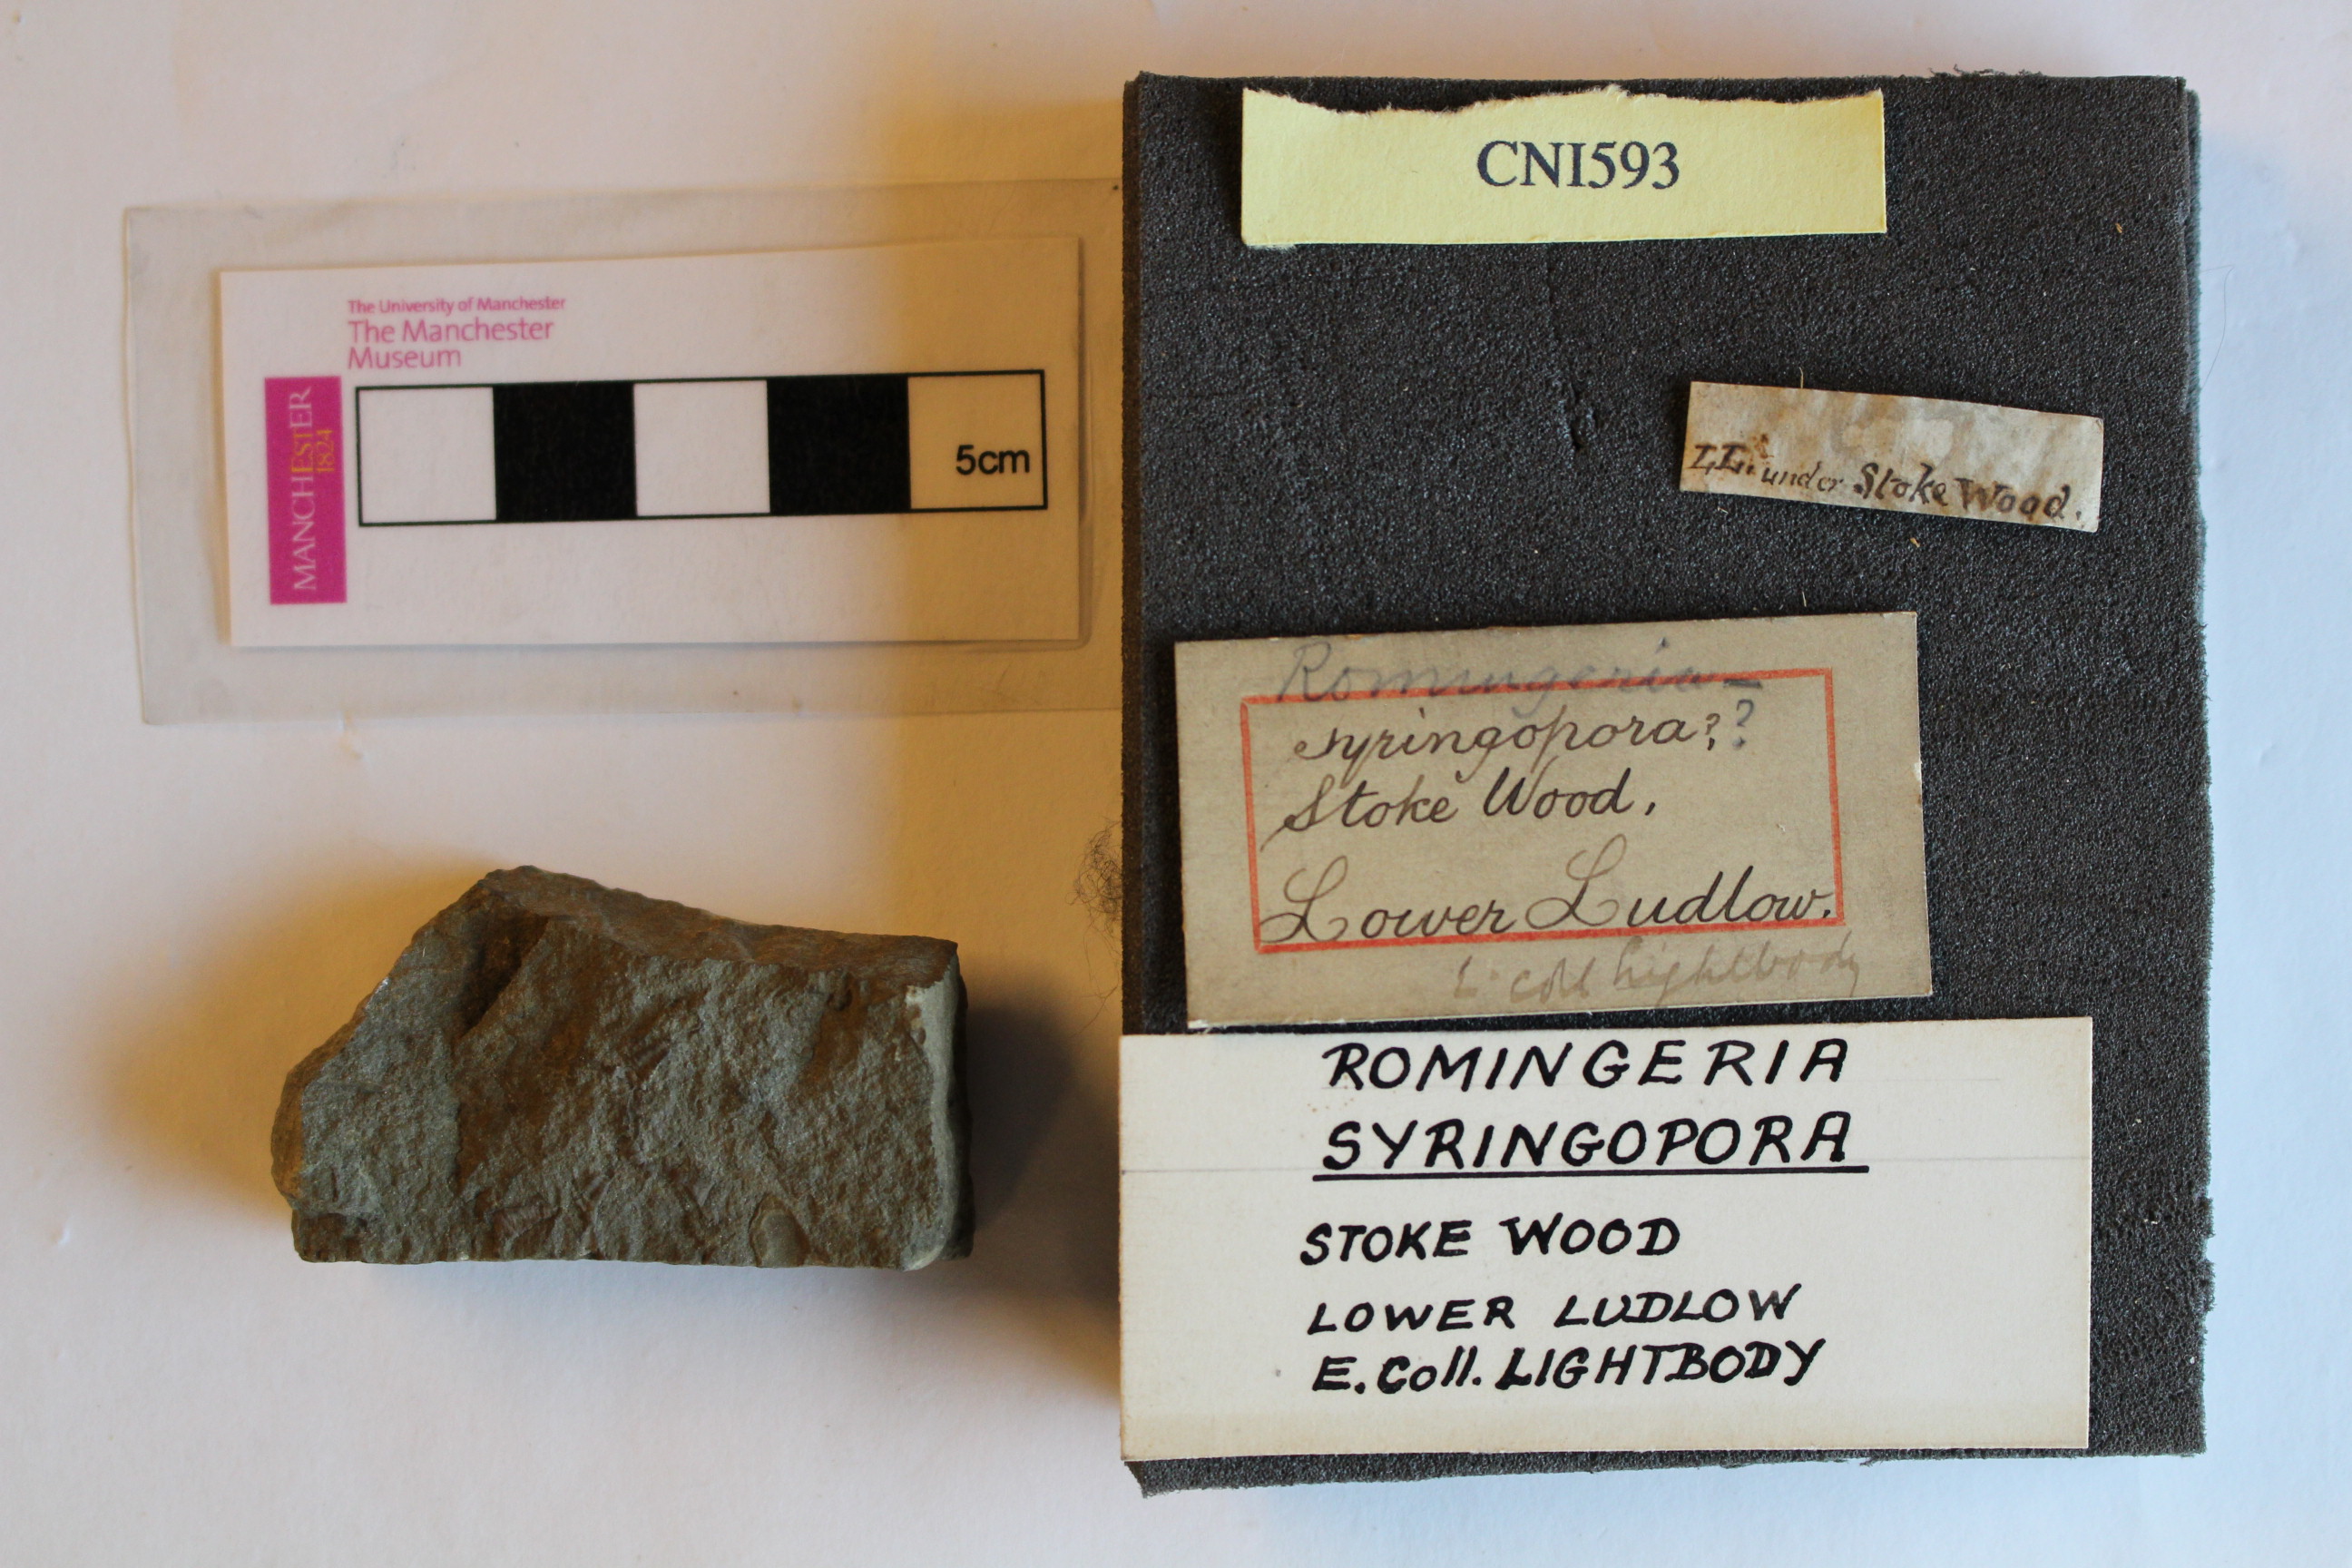 The University of Manchester
The Manchester
Museum
MANCHESTER
1824
5cm
CNI593
L.L. under Stoke Wood.
Romingeria
Syringopora??
Stoke Wood.
Lower Ludlow.
coll Lightbody
ROMINGERIA
SYRINGOPORA
STOKE WOOD
LOWER LUDLOW
E. Coll. LIGHTBODY